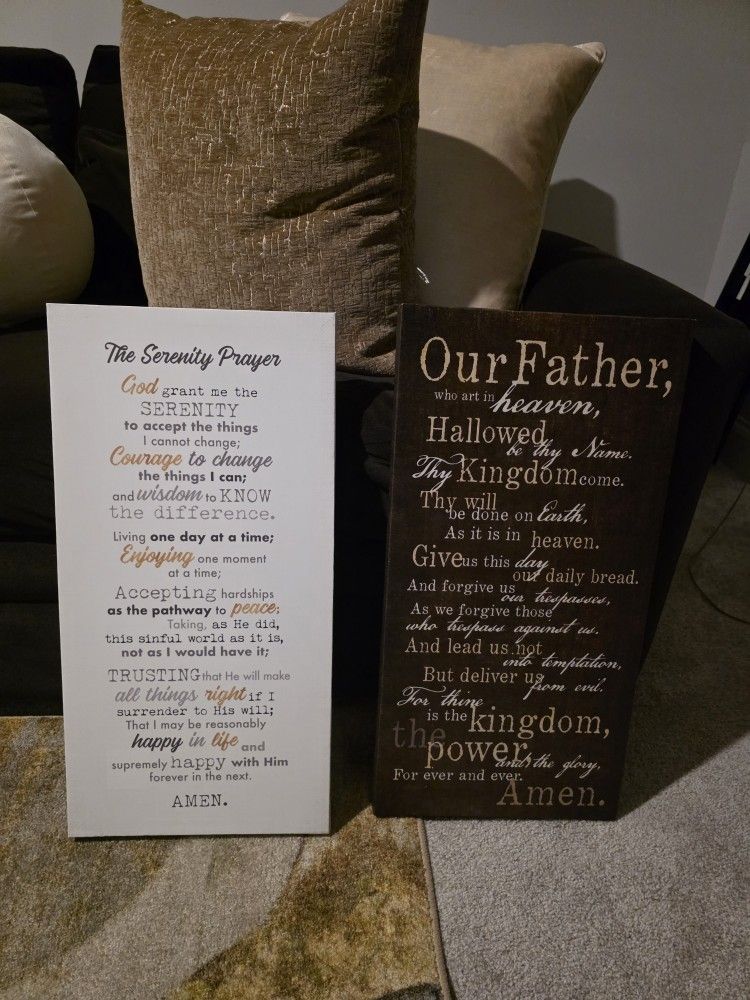 The Serenity Prayer
God grant me the
SERENITY
to accept the things
I cannot change;
Courage to change
the things I can;
and wisdom to KNOW
the difference.
Living one day at a time;
Enjoying one moment
at a time;
Accepting hardships
as the pathway to peace;
Taking, as He did,
this sinful world as it is,
not as I would have it;
TRUSTING that He will make
all things right if I
surrender to His will;
That I may be reasonably
happy in life and
supremely happy with Him
forever in the next.
AMEN.
Our Father,
who art in heaven,
Hallowed be thy Name.
Thy Kingdom come.
Thy will
be done on Earth,
As it is in heaven.
Give us this day
our daily bread.
And forgive us
our trespasses,
As we forgive those
who trespass against us.
And lead us not
into temptation,
But deliver us
from evil.
For thine
is the kingdom,
the power,
and the glory,
For ever and ever.
Amen.